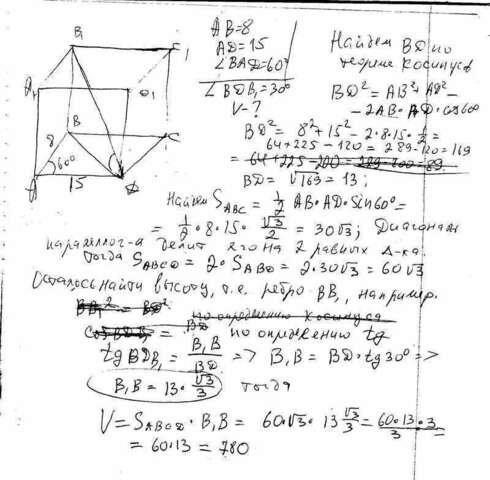 B₁
C₁
A₁
D₁
B
C
8
60°
A
15
D
AB=8
AD=15
∠BAD=60°
∠BDB₁=30°
V-?
Найдем BD по
теореме косинусов
BD²=AB²+AD²-
-2AB·AD·cos60°
BD²=8²+15²-2·8·15·1/2=
64+225-120=289-120=169
= 64+225-200=289-200=89
BD=√169=13;
Найдем S_ABC=1/2 AB·AD·sin60°=
=1/2·8·15·√3/2=30√3; Диагональ
параллелог-а делит его на 2 равных Δ-ка.
тогда S_ABCD=2·S_ABD=2·30√3=60√3
Осталось найти высоту, т.е. ребро BB₁, например.
BB₁²=BD² по определению косинуса
cos BDB₁=BD по определению tg
tg BDB₁=B₁B/BD => B₁B=BD·tg30° =>
B₁B=13·√3/3 тогда
V=S_ABCD·B₁B=60·√3·13√3/3=60·13·3/3=
=60·13=780